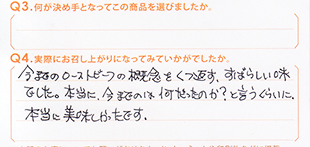 Q3.何が決め手となってこの商品を選びましたか。
Q4.実際にお召し上がりになってみていかがでしたか。
今までのローストビーフの概念をくつ返す、すばらしい味
でした。本当に、今までのは何だったのか?と言うくらいに、
本当に美味しかったです。